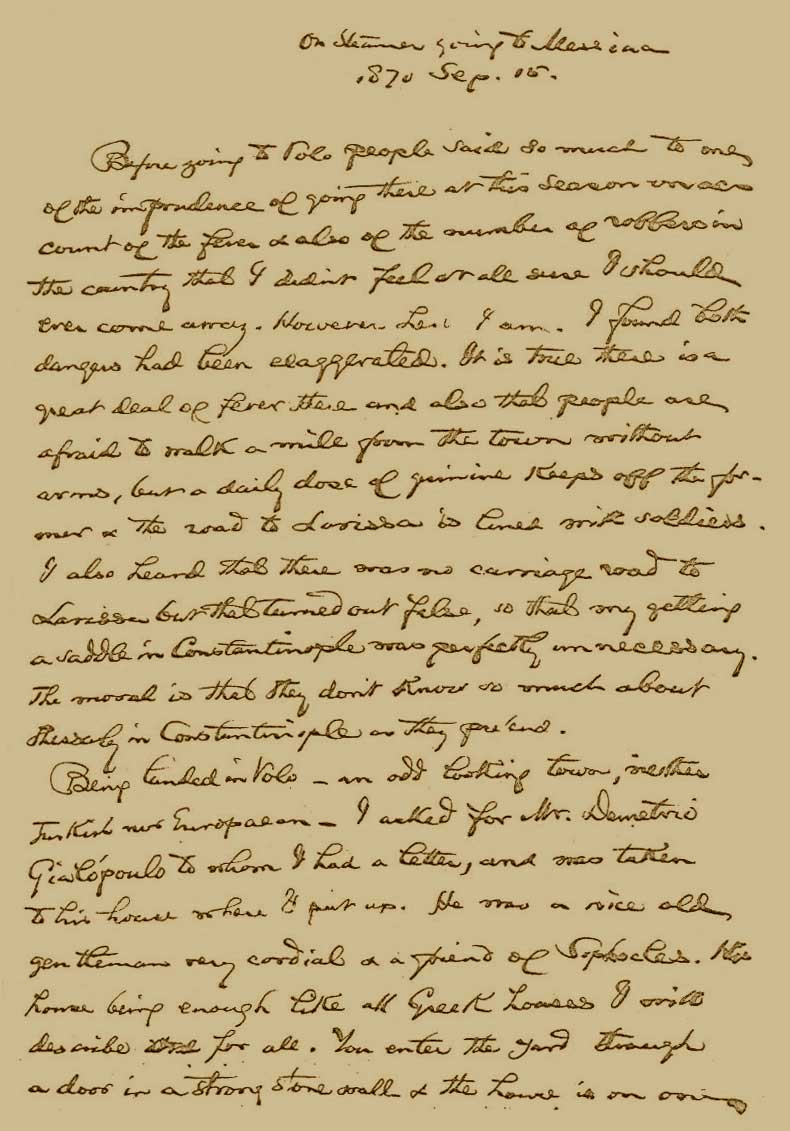 On Steamer going to Messina
1870 Sep. 15.
Before going to Volo people said so much to me
of the imprudence of going there at this season on ac
count of the fever & also of the number of robbers in
the country that I didn't feel at all sure I should
ever come away. However here I am. I found both
dangers had been exaggerated. It is true there is a
great deal of fever there and also that people are
afraid to walk a mile from the town without
arms, but a daily dose of quinine keeps off the for-
mer & the road to Larissa is lined with soldiers.
I also heard that there was no carriage road to
Larissa but that turned out false, so that my getting
a saddle in Constantinople was perfectly unnecessary.
The moral is that they don't know so much about
Thessaly in Constantinople as they pretend.
Being landed in Volo – an odd looking town, neither
Turkish nor European – I asked for Mr. Demetrio
Gialópoulo to whom I had a letter, and was taken
to his house where I put up. He was a nice old
gentleman very cordial & a friend of Sophocles. His
house being enough like all Greek houses I will
describe for all. You enter the yard through
a door in a strong stone wall & the house is on one